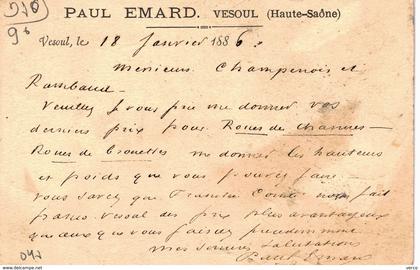 PAUL EMARD. VESOUL (Haute-Saône)
Vesoul, le 18 Janvier 1886.
Messieurs Champenois et
Rambaud
Veuillez je vous prie me donner vos
derniers prix pour Roues de charrues
Roues de brouettes me donner les hauteurs
et poids que vous pouvez faire
vous savez que fait
franco Vesoul des prix plus avantageux
que ceux que vous faisiez
mes sincères Salutations
Paul Emard